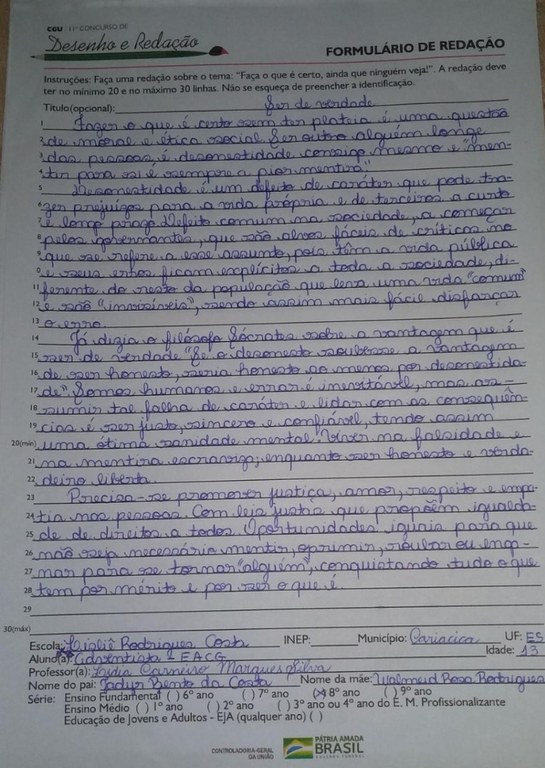 CGU 11º CONCURSO DE
Desenho e Redação
FORMULÁRIO DE REDAÇÃO
Instruções: Faça uma redação sobre o tema: "Faça o que é certo, ainda que ninguém veja!". A redação deve
ter no mínimo 20 e no máximo 30 linhas. Não se esqueça de preencher a identificação.
Título(opcional): Ser de verdade
1 Fazer o que é certo sem ter plateia é uma questão
2 de moral e ética social. Ser outro alguém longe
3 das pessoas, é desonestidade consigo mesmo e "men-
4 tir para si é sempre a pior mentira".
5 Desonestidade é um defeito de caráter que pode tra-
6 zer prejuízos para a vida própria e de terceiros a curto
7 e longo prazo. Defeito comum na sociedade, a começar
8 pelos governantes, que são alvos fáceis de críticas no
9 que se refere a esse assunto, pois têm a vida pública
10 e seus erros ficam explícitos a toda a sociedade, di-
11 ferente do resto da população que leva uma vida "comum"
12 e são "invisíveis", sendo assim mais fácil disfarçar
13 o erro.
14 Já dizia o filósofo Sócrates sobre a vantagem que é
15 ser de verdade "Se o desonesto soubesse a vantagem
16 de ser honesto, seria honesto ao menos por desonestida-
17 de". Somos humanos e errar é inevitável, mas as-
18 sumir tal falha de caráter e lidar com as consequên-
19 cias é ser justo, sincero e confiável, tendo assim
20(min) uma ótima sanidade mental. Viver na falsidade e
21 na mentira escraviza, enquanto ser honesto e verda-
22 deiro liberta.
23 Precisa-se promover justiça, amor, respeito e empa-
24 tia nas pessoas. Com leis justas que propõem igualda-
25 de de direitos a todos. Oportunidades iguais para que
26 não seja necessário mentir, oprimir, roubar ou enga-
27 nar para se tornar "alguém", conquistando tudo o que
28 tem por mérito e por ser o que é.
29
30(máx)
Escola: Rodrigues Costa INEP: Município: Cariacica UF: ES
Aluno(a): Adventista EACG Idade: 13
Professor(a): Lydia Carneiro Marques Silva
Nome do pai: Bento da Costa Nome da mãe: Rosa Rodrigues
Série: Ensino Fundamental ( ) 6º ano ( ) 7º ano (X) 8º ano ( ) 9º ano
Ensino Médio ( ) 1º ano ( ) 2º ano ( ) 3º ano ou 4º ano do E. M. Profissionalizante
Educação de Jovens e Adultos - EJA (qualquer ano) ( )
CONTROLADORIA-GERAL
DA UNIÃO
PÁTRIA AMADA
BRASIL
GOVERNO FEDERAL